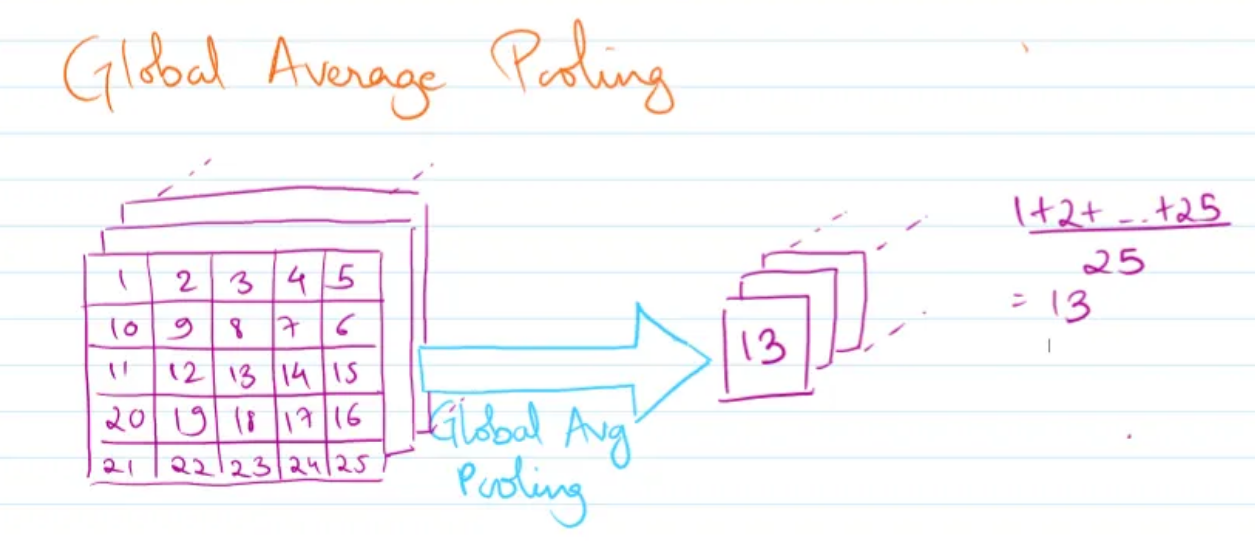 Global Average Pooling
1 2 3 4 5
10 9 8 7 6
11 12 13 14 15
20 19 18 17 16
21 22 23 24 25
Global Avg
Pooling
13
1+2+ ... +25
25
= 13